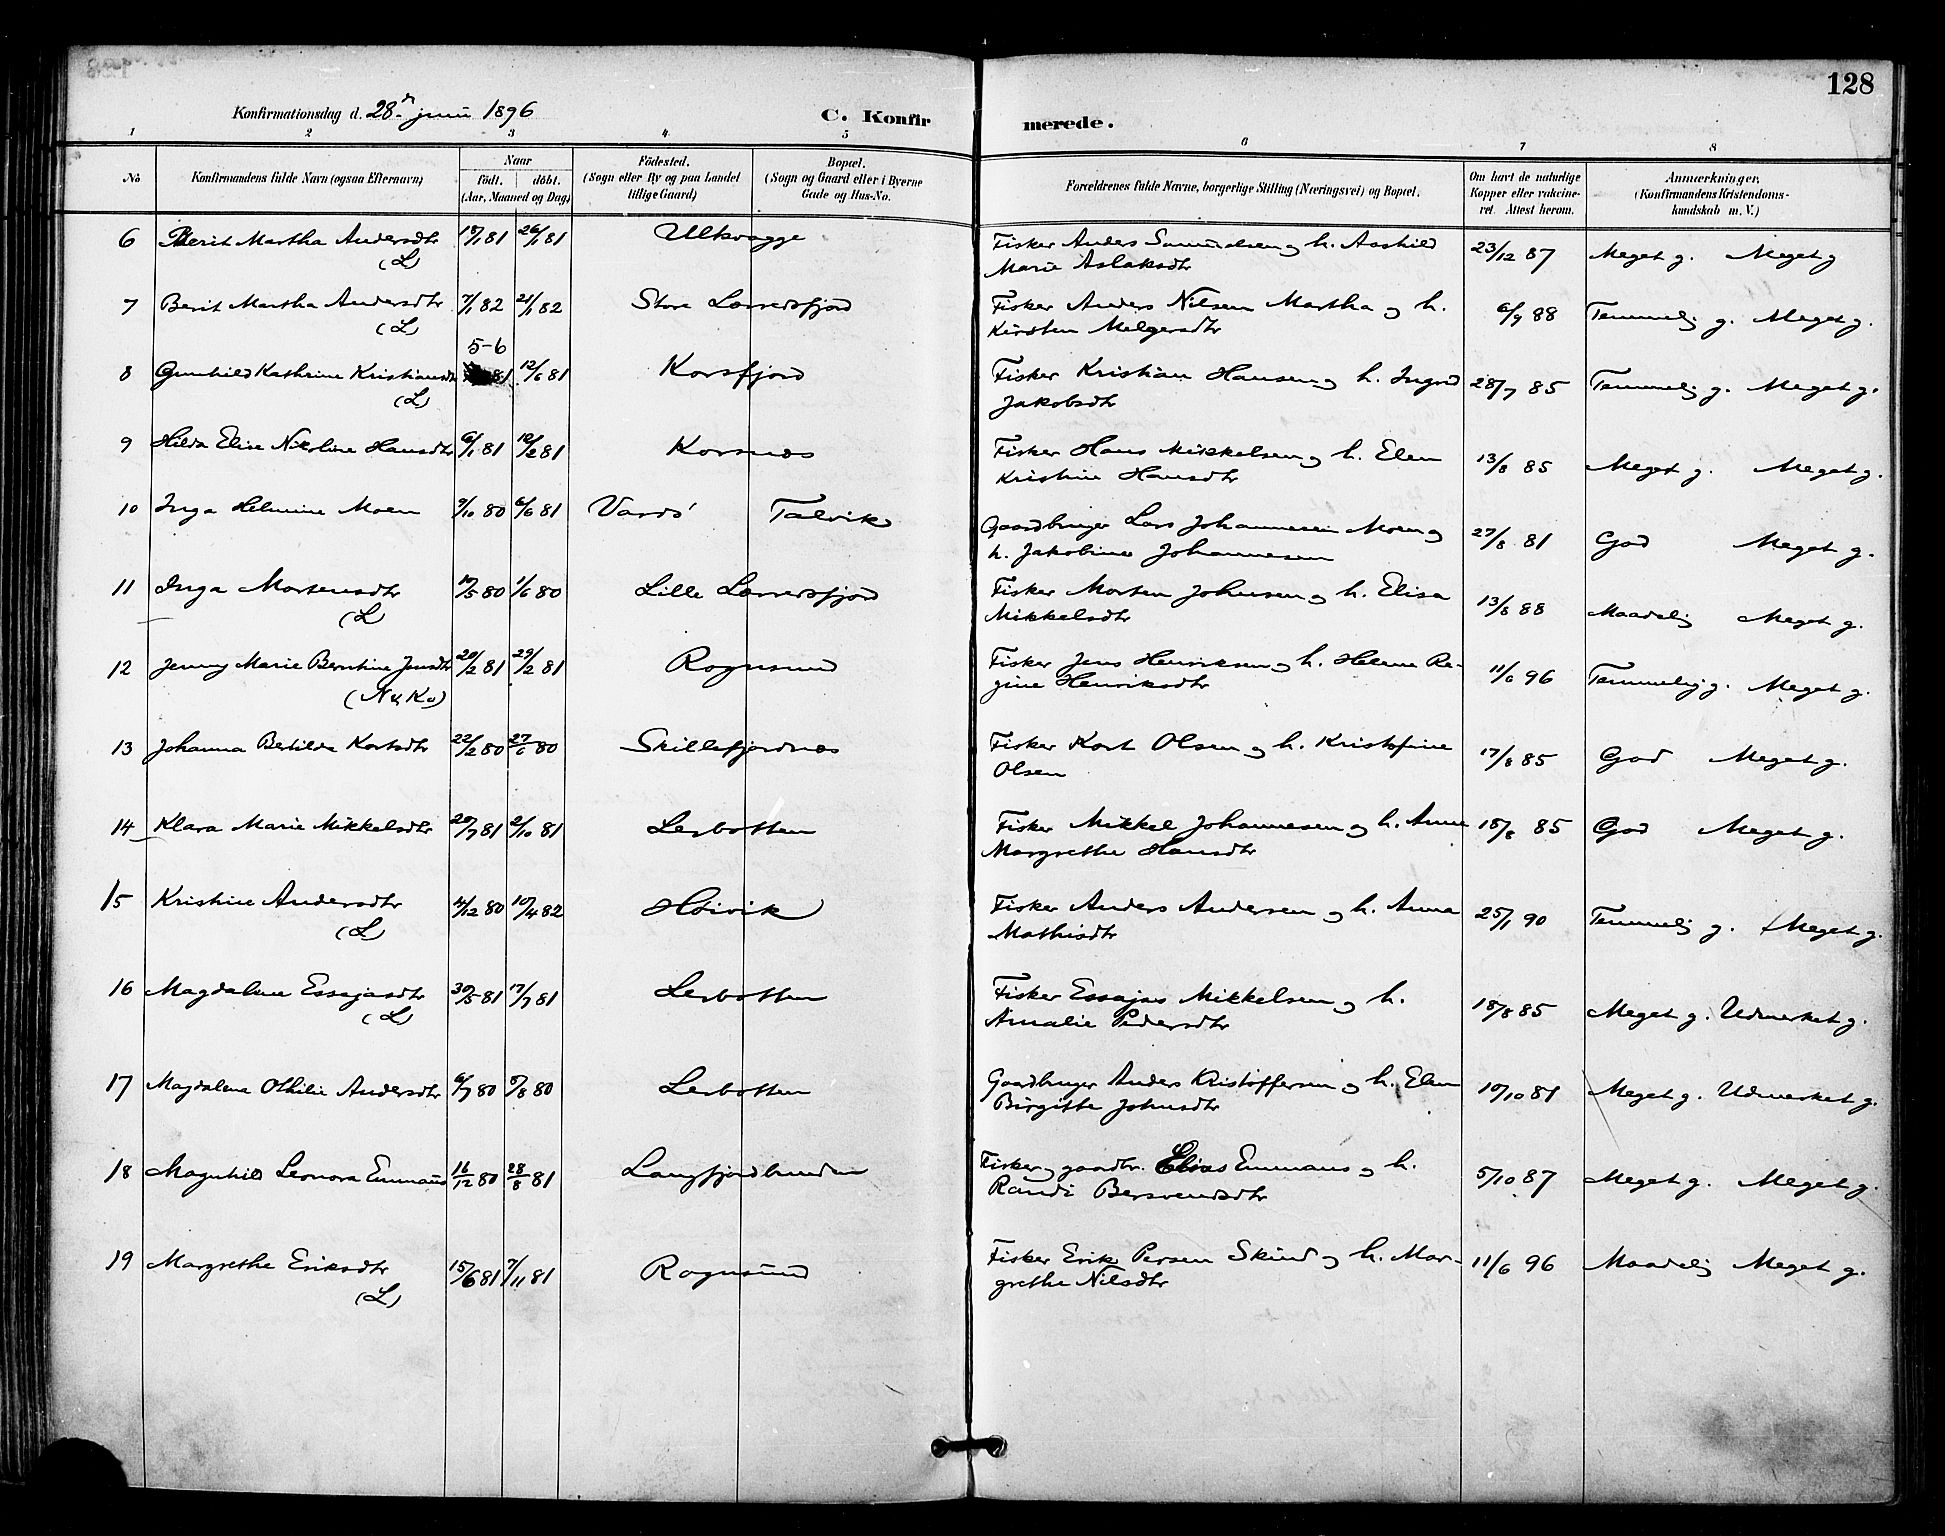 128
Konfirmationsdag d. 28de juni 1896
C. Konfirmerede.
1 2 3 4 5 6 7 8
No
Konfirmandens fulde Navn (ogsaa Efternavn)
Naar
født. døbt.
(Aar, Maaned og Dag)
Födested.
(Sogn eller By og paa Landet
tillige Gaard)
Bopæl.
(Sogn og Gaard eller i Byerne
Gade og Hus-No.
Forældrenes fulde Navne, borgerlige Stilling (Næringsvei) og Bopæl.
Om havt de naturlige
Kopper eller vakcine-
ret. Attest herom.
Anmærkninger,
(Konfirmandens Kristendoms-
kundskab m. V.)
6 Berit Martha Andersdtr 18/1 81 26/1 81 Ulkvagge Fisker Anders Samuelsen og h. Aashild 23/12 87 Meget g. Meget g
(L) Marie Aslaksdtr
7 Berit Martha Andersdtr 7/1 82 21/1 82 Store Lerredsfjord Fisker Anders Nilsen Martha og h. 6/9 88 Temmelig g. Meget g.
(L) Kirsten Melgersdtr
5-6
8 Gunhild Kathrine Kristiansdtr 81 12/6 81 Korsfjord Fisker Kristian Hansen og h. Ingrid 28/7 85 Temmelig g. Meget g.
(L) Jakobsdtr
9 Hilda Elise Nikoline Hansdtr 6/1 81 12/2 81 Korsnes Fisker Hans Mikkelsen og h. Elen 13/8 85 Meget g. Meget g.
Kristine Hansdtr
10 Inga Helmine Moen 9/10 80 6/6 81 Vardö Talvik Gaardbruger Lars Johannesen Moen og 27/8 81 God Meget g.
h. Jakobine Johannesen
11 Inga Mortensdtr 10/5 80 1/6 80 Lille Lerredsfjord Fisker Morten Johnsen og h. Elisa 13/8 88 Maadelig Meget g.
(L) Mikkelsdtr
12 Jenny Marie Berntine Jensdtr 20/2 81 29/2 81 Rognsund Fisker Jens Henriksen og h. Helene Re- 11/6 96 Temmelig g. Meget g.
(N & Kv) gine Henriksdtr
13 Johanna Bertilde Kortsdtr 22/2 80 27/6 80 Skillefjordnes Fisker Kort Olsen og h. Kristofine 17/8 85 God Meget g.
Olsen
14 Klara Marie Mikkelsdtr 20/7 81 2/10 81 Lerbotten Fisker Mikkel Johannesen og h. Anne 18/8 85 God Meget g.
Margrethe Hansdtr
15 Kristine Andersdtr 14/12 80 10/4 82 Höivik Fisker Anders Andersen og h. Anna 25/1 90 Temmelig g. Meget g.
(L) Mathisdtr
16 Magdalene Essajasdtr 30/5 81 17/7 81 Lerbotten Fisker Essajas Mikkelsen og h. 18/8 85 Meget g. Udmerket g.
(L) Amalie Pedersdtr
17 Magdalena Othilie Andersdtr 6/7 80 8/8 80 Lerbotten Gaardbruger Anders Kristoffersen og h. Elen 10/10 81 Meget g. Udmerket g.
Birgitte Johnsdtr
18 Magnhild Leonora Emmaus 16/12 80 28/8 81 Langfjordbunden Fisker og gaardbr. Elias Emmaus og h. 5/10 87 Meget g. Meget g.
Randi Bersvendsdtr
19 Margrethe Eriksdtr 15/6 81 7/11 81 Rognsund Fisker Erik Persen Skind og h. Mar- 11/6 96 Maadelig Meget g.
(L) grethe Nilsdtr